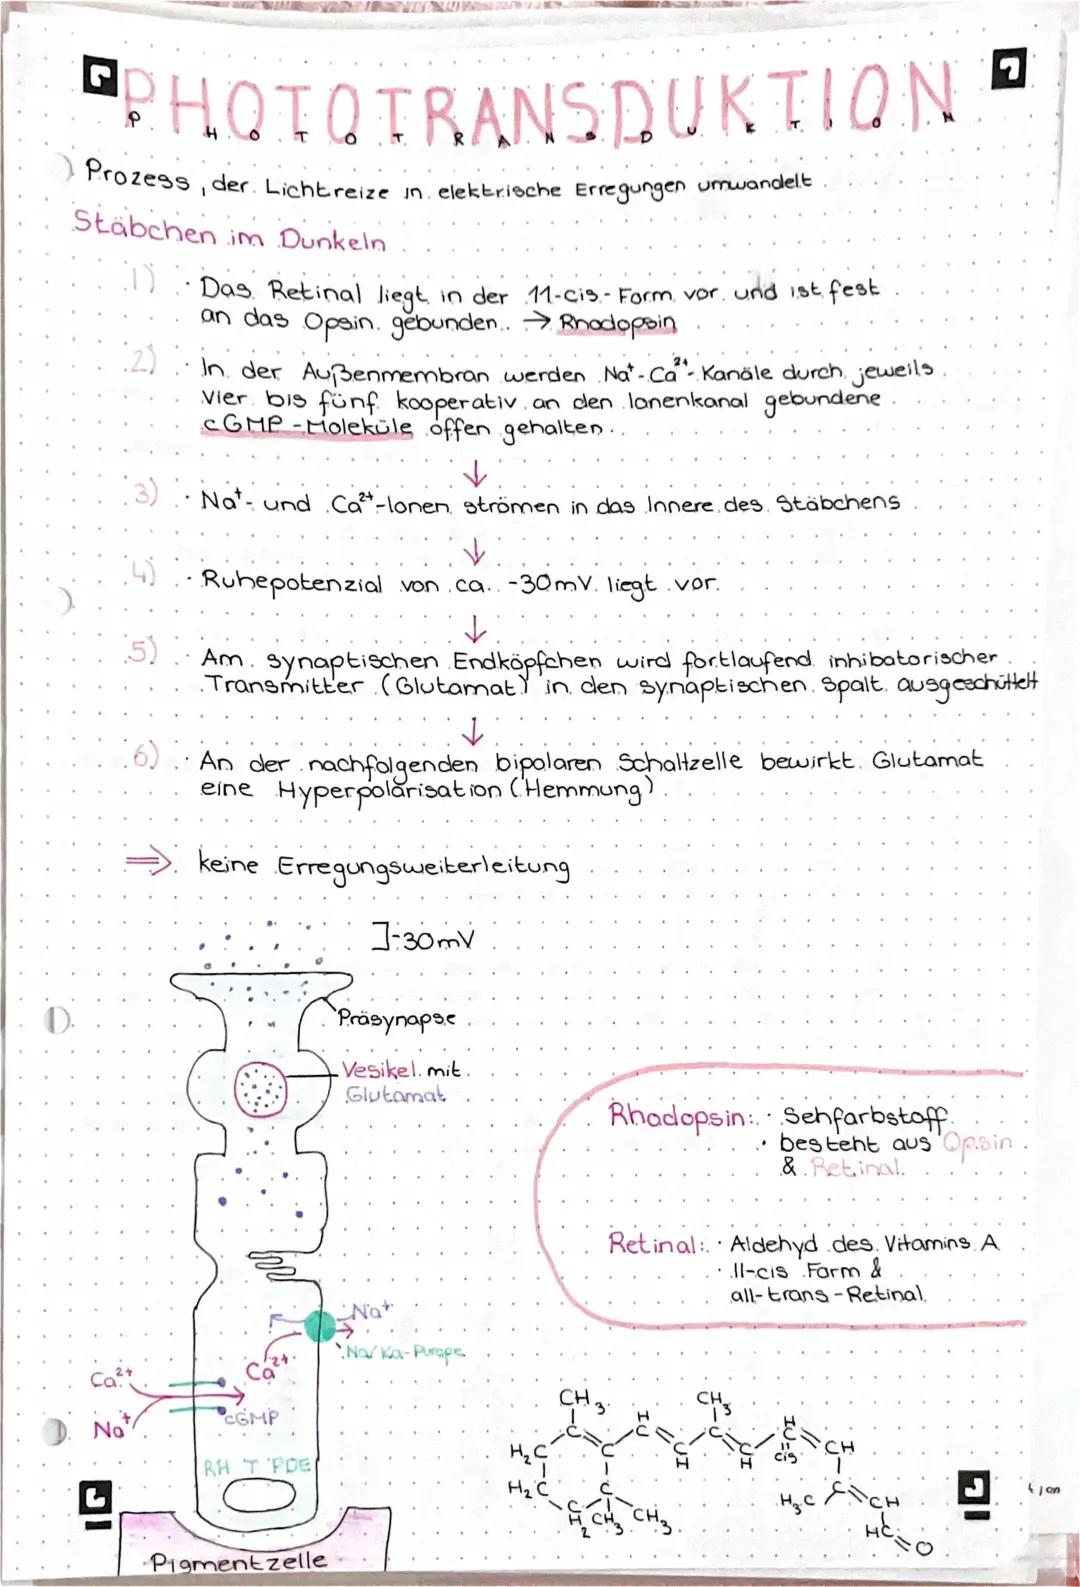 PHOTOTRANSDUKTION
PHOTOTRANSDUKTION
Prozess, der Lichtreize in elektrische Erregungen umwandelt.
Stäbchen im Dunkeln
1) · Das Retinal liegt in der 11-cis-Form vor und ist fest
an das Opsin gebunden. → Rhodopsin
2) · In der Außenmembran werden Na⁺-Ca²⁺-Kanäle durch jeweils
vier bis fünf kooperativ an den Ionenkanal gebundene
cGMP-Moleküle offen gehalten.
↓
3) · Na⁺- und Ca²⁺-Ionen strömen in das Innere des Stäbchens
↓
4) · Ruhepotenzial von ca. -30mV liegt vor.
↓
5) · Am synaptischen Endköpfchen wird fortlaufend inhibatorischer
Transmitter (Glutamat) in den synaptischen Spalt ausgeschüttelt
↓
6) · An der nachfolgenden bipolaren Schaltzelle bewirkt Glutamat
eine Hyperpolarisation (Hemmung)
⇒ keine Erregungsweiterleitung
]-30mV
Präsynapse
Vesikel mit
Glutamat
Rhodopsin: · Sehfarbstoff
· besteht aus Opsin
& Retinal
Retinal: · Aldehyd des Vitamins A
· 11-cis Form &
all-trans-Retinal
Na⁺
Na/Ka-Pumpe
Ca²⁺
Ca²⁺
Na⁺
cGMP
RH T PDE
Pigmentzelle
CH₃
CH₃
H
H
C
C
C
C
C
CH
H₂C
C
C
H
C
H
cis
H₂C
C
H₃C
C
CH
C
H₂
CH₃
CH₃
HC
O